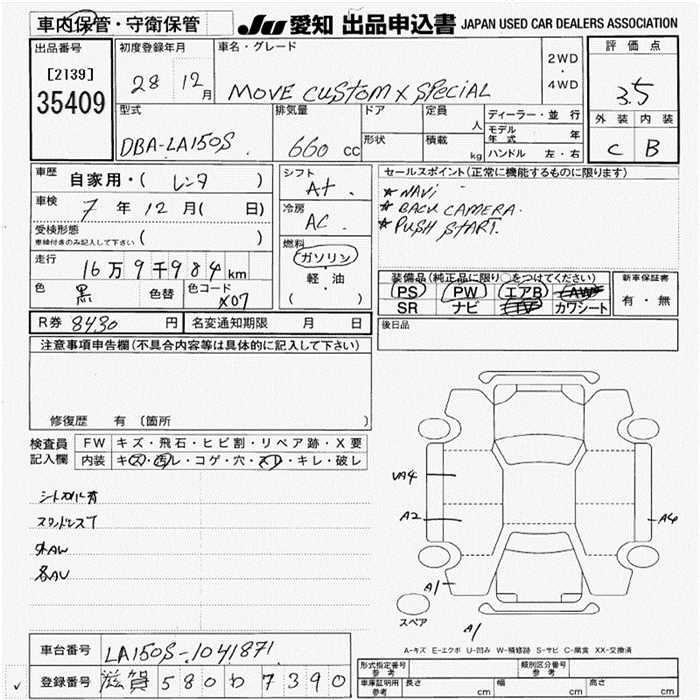 車内保管・守衛保管
JU 愛知 出品申込書 JAPAN USED CAR DEALERS ASSOCIATION
出品番号
[2139]
35409
初度登録年月
28 12月
車名・グレード
MOVE CUSTOM X SPECIAL
2WD
・
4WD
評価点
3.5
外装 内装
C B
型式
DBA-LA150S
排気量
660 cc
ドア
形状
定員
人
積載
kg
ディーラー・並行
モデル年式 年
ハンドル 左・右
車歴 自家用・( レンタ )
車検 7年12月( 日)
受検形態
車検付きのみ記入して下さい ( )
走行 16万9千984km
色 黒 色替 色コード X07
シフト
At
冷房
AC
燃料
ガソリン
軽・油
( )
セールスポイント(正常に機能するものに限ります)
★NAVI
★BACK CAMERA.
★PUSH START.
装備品(純正品に限り○をつけてください)
PS PW エアB AW
SR ナビ TV カワシート
新車保証書
有・無
R券 8430 円 名変通知期限 月 日
後日品
注意事項申告欄(不具合内容等は具体的に記入して下さい)
修復歴 有 (箇所 )
検査員
記入欄
FW キズ・飛石・ヒビ割・リペア跡・X要
内装 キズ・汚レ・コゲ・穴・スレ・キレ・破レ
外AW
VA4
A2
A4
A1
A1
スペア
A-キズ E-エクボ U-凹み W-補修跡 S-サビ C-腐食 XX-交換済
車台番号 LA150S-1041871
登録番号 滋賀 580 わ 7390
形式指定番号
参考
類別区分番号
参考
車庫証明用
参考
長さ cm 幅 cm 高さ cm